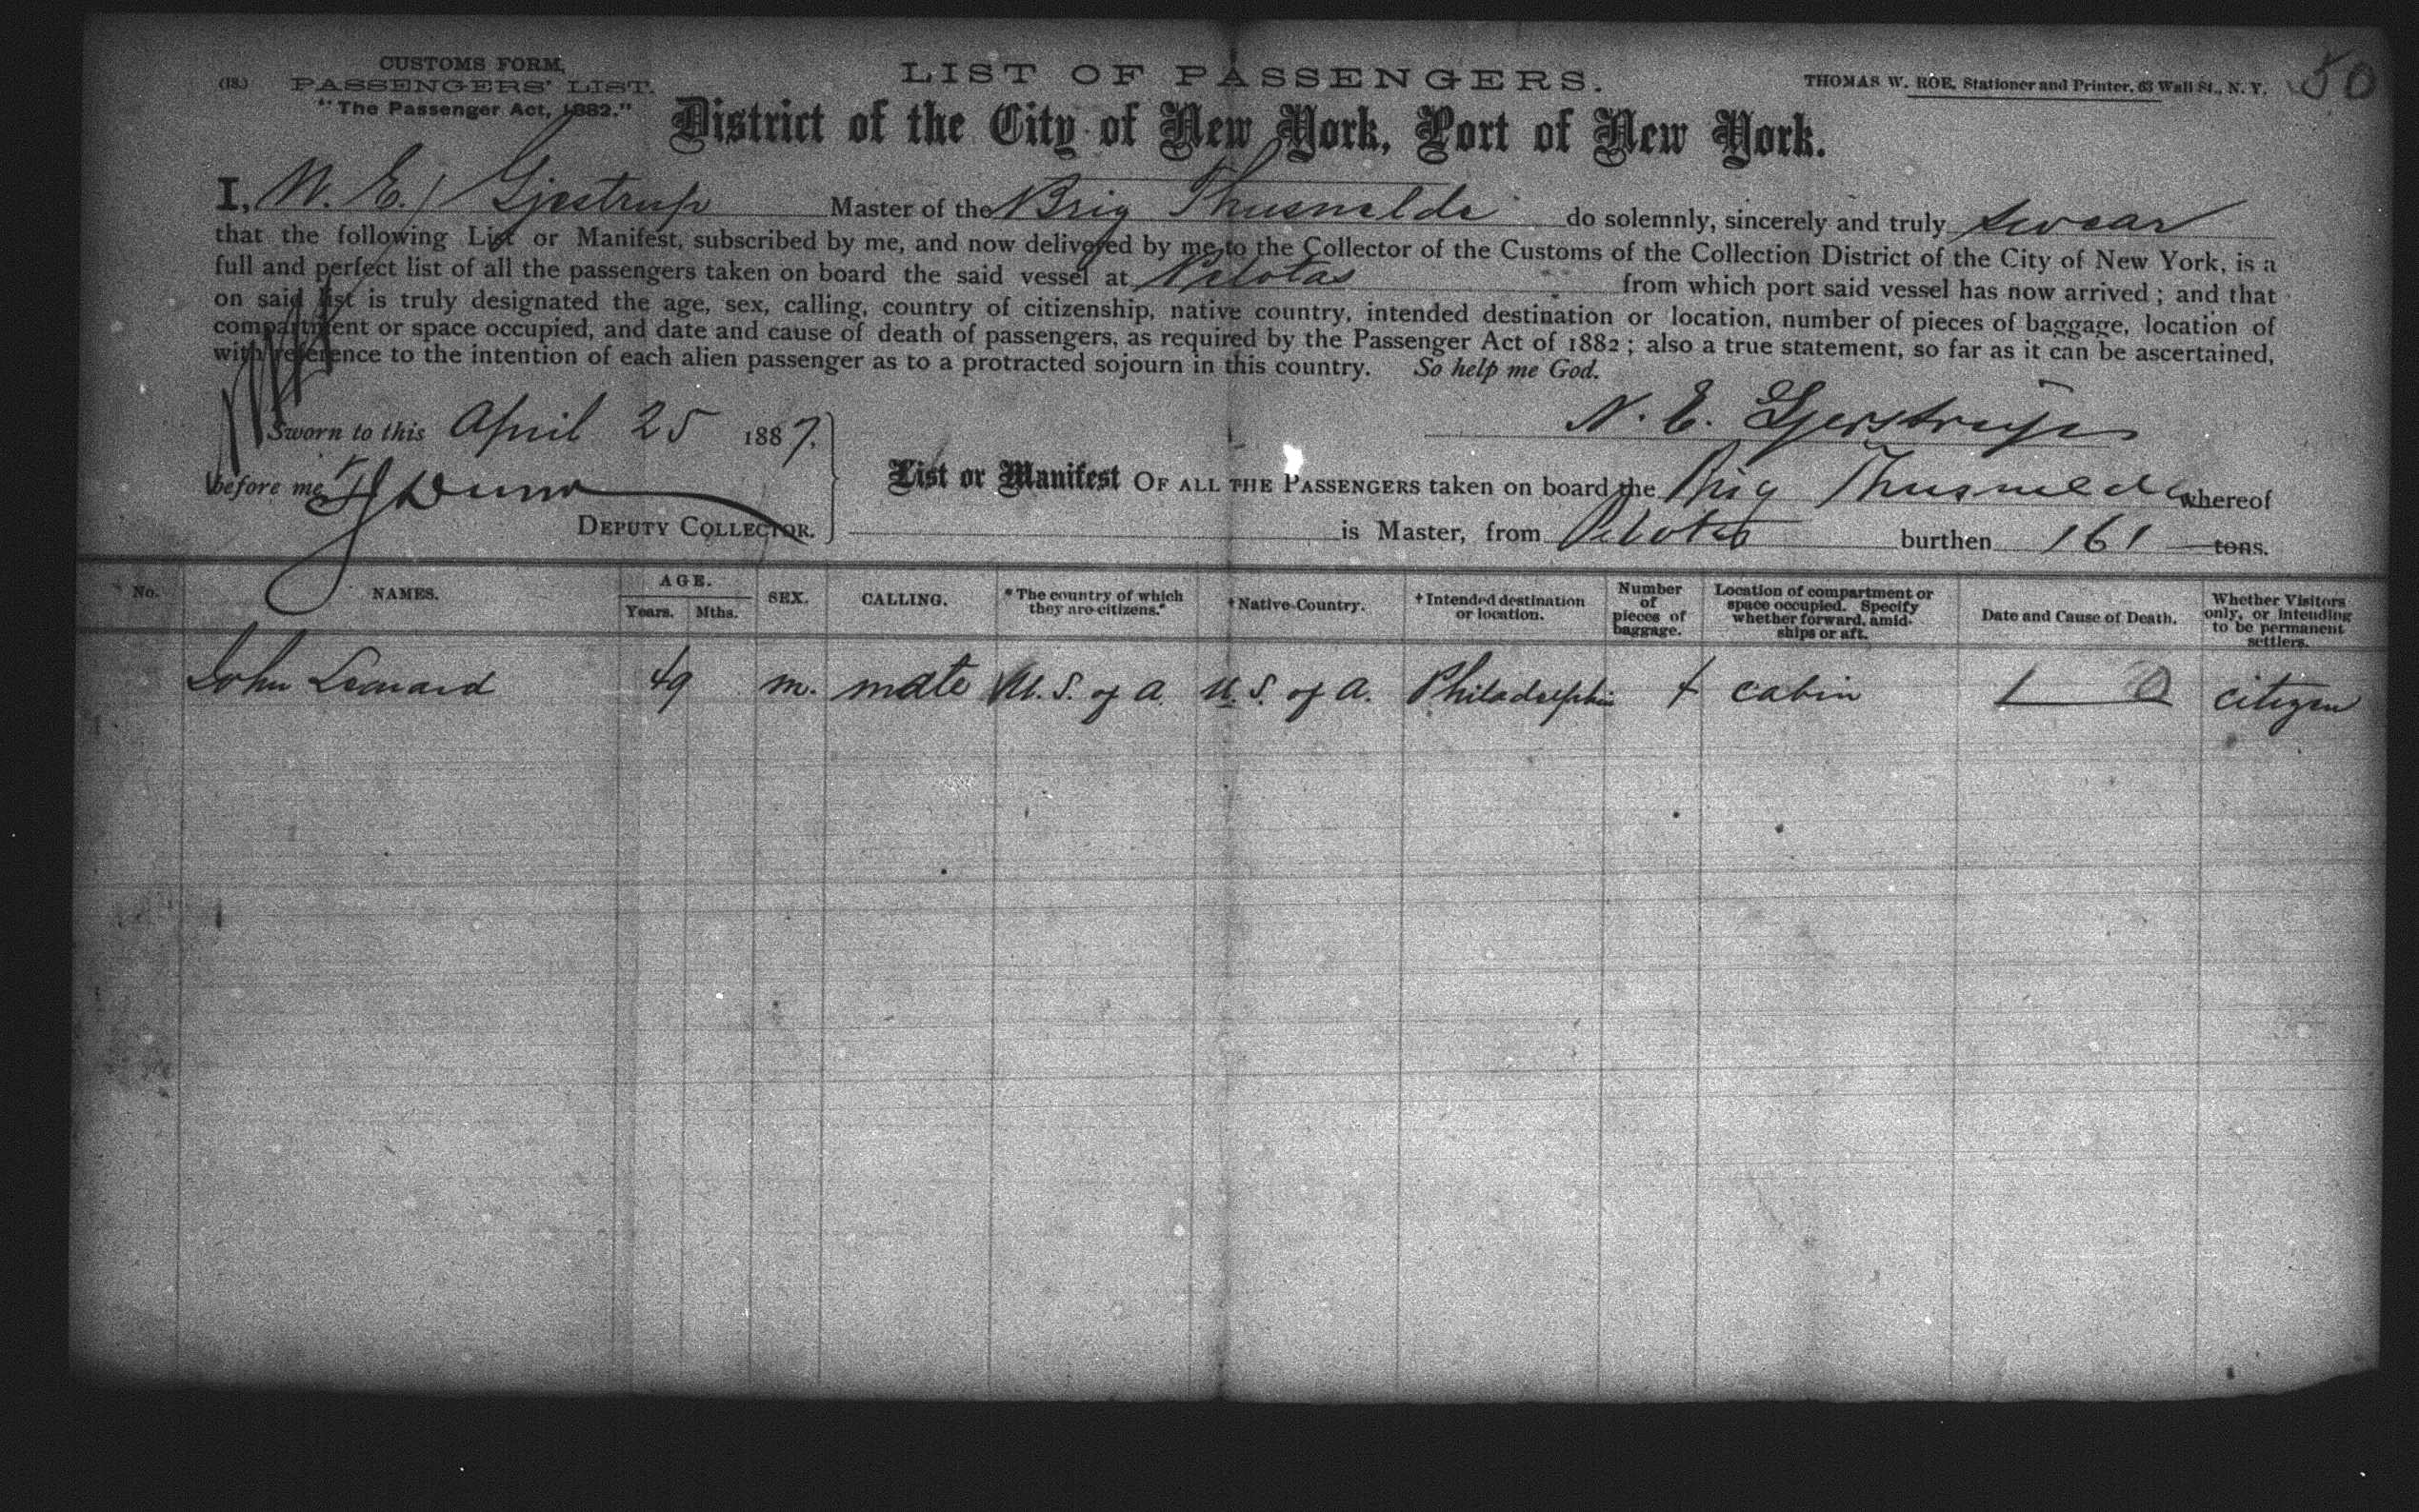 (18.)
CUSTOMS FORM,
PASSENGERS' LIST.
"The Passenger Act, 1882."
LIST OF PASSENGERS.
THOMAS W. ROE, Stationer and Printer, 63 Wall St., N. Y.
50
District of the City of New York, Port of New York.
I, N. E. Gjestrup Master of the Brig Thusnelda do solemnly, sincerely and truly swear
that the following List or Manifest, subscribed by me, and now delivered by me to the Collector of the Customs of the Collection District of the City of New York, is a
full and perfect list of all the passengers taken on board the said vessel at Pelotas from which port said vessel has now arrived; and that
on said list is truly designated the age, sex, calling, country of citizenship, native country, intended destination or location, number of pieces of baggage, location of
compartment or space occupied, and date and cause of death of passengers, as required by the Passenger Act of 1882; also a true statement, so far as it can be ascertained,
with reference to the intention of each alien passenger as to a protracted sojourn in this country. So help me God.
N. E. Gjerstrup
Sworn to this April 25 1887.
before me Dunn
DEPUTY COLLECTOR.
List or Manifest OF ALL THE PASSENGERS taken on board the Brig Thusnelda whereof
is Master, from Pelotas burthen 161 tons.
No. NAMES. AGE. Years. Mths. SEX. CALLING. *The country of which they are citizens.* †Native Country. †Intended destination or location. Number of pieces of baggage. Location of compartment or space occupied. Specify whether forward, amidships or aft. Date and Cause of Death. Whether Visitors only, or intending to be permanent settlers.
John Leonard 49 m. mate U. S. of A. U. S. of A. Philadelphia cabin citizen